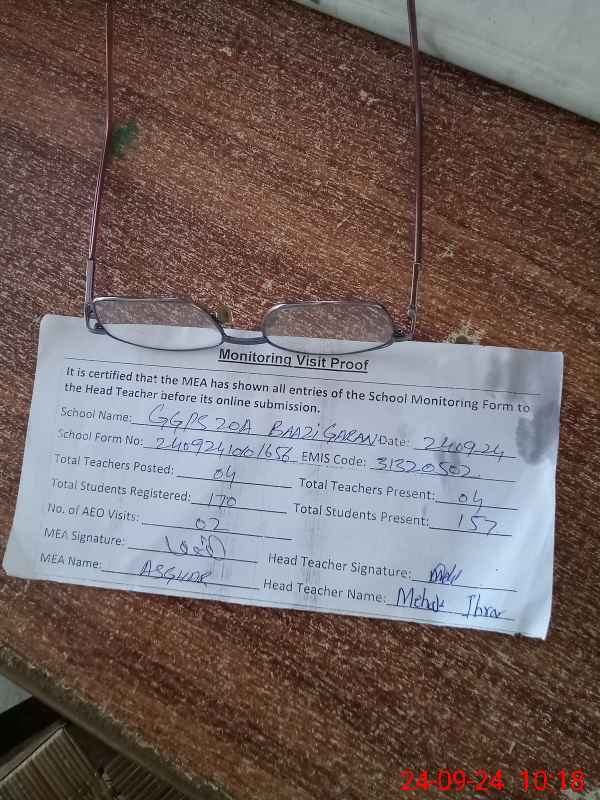 Monitoring Visit Proof
It is certified that the MEA has shown all entries of the School Monitoring Form to
the Head Teacher before its online submission.
School Name: GGPS 20A BAAZIGARAN Date: 240924
School Form No: 2409241001656 EMIS Code: 31320502
Total Teachers Posted: 04 Total Teachers Present: 04
Total Students Registered: 170 Total Students Present: 157
No. of AEO Visits: 02
MEA Signature: Head Teacher Signature:
MEA Name: ASGHAR Head Teacher Name: Mehak
24-09-24 10:18